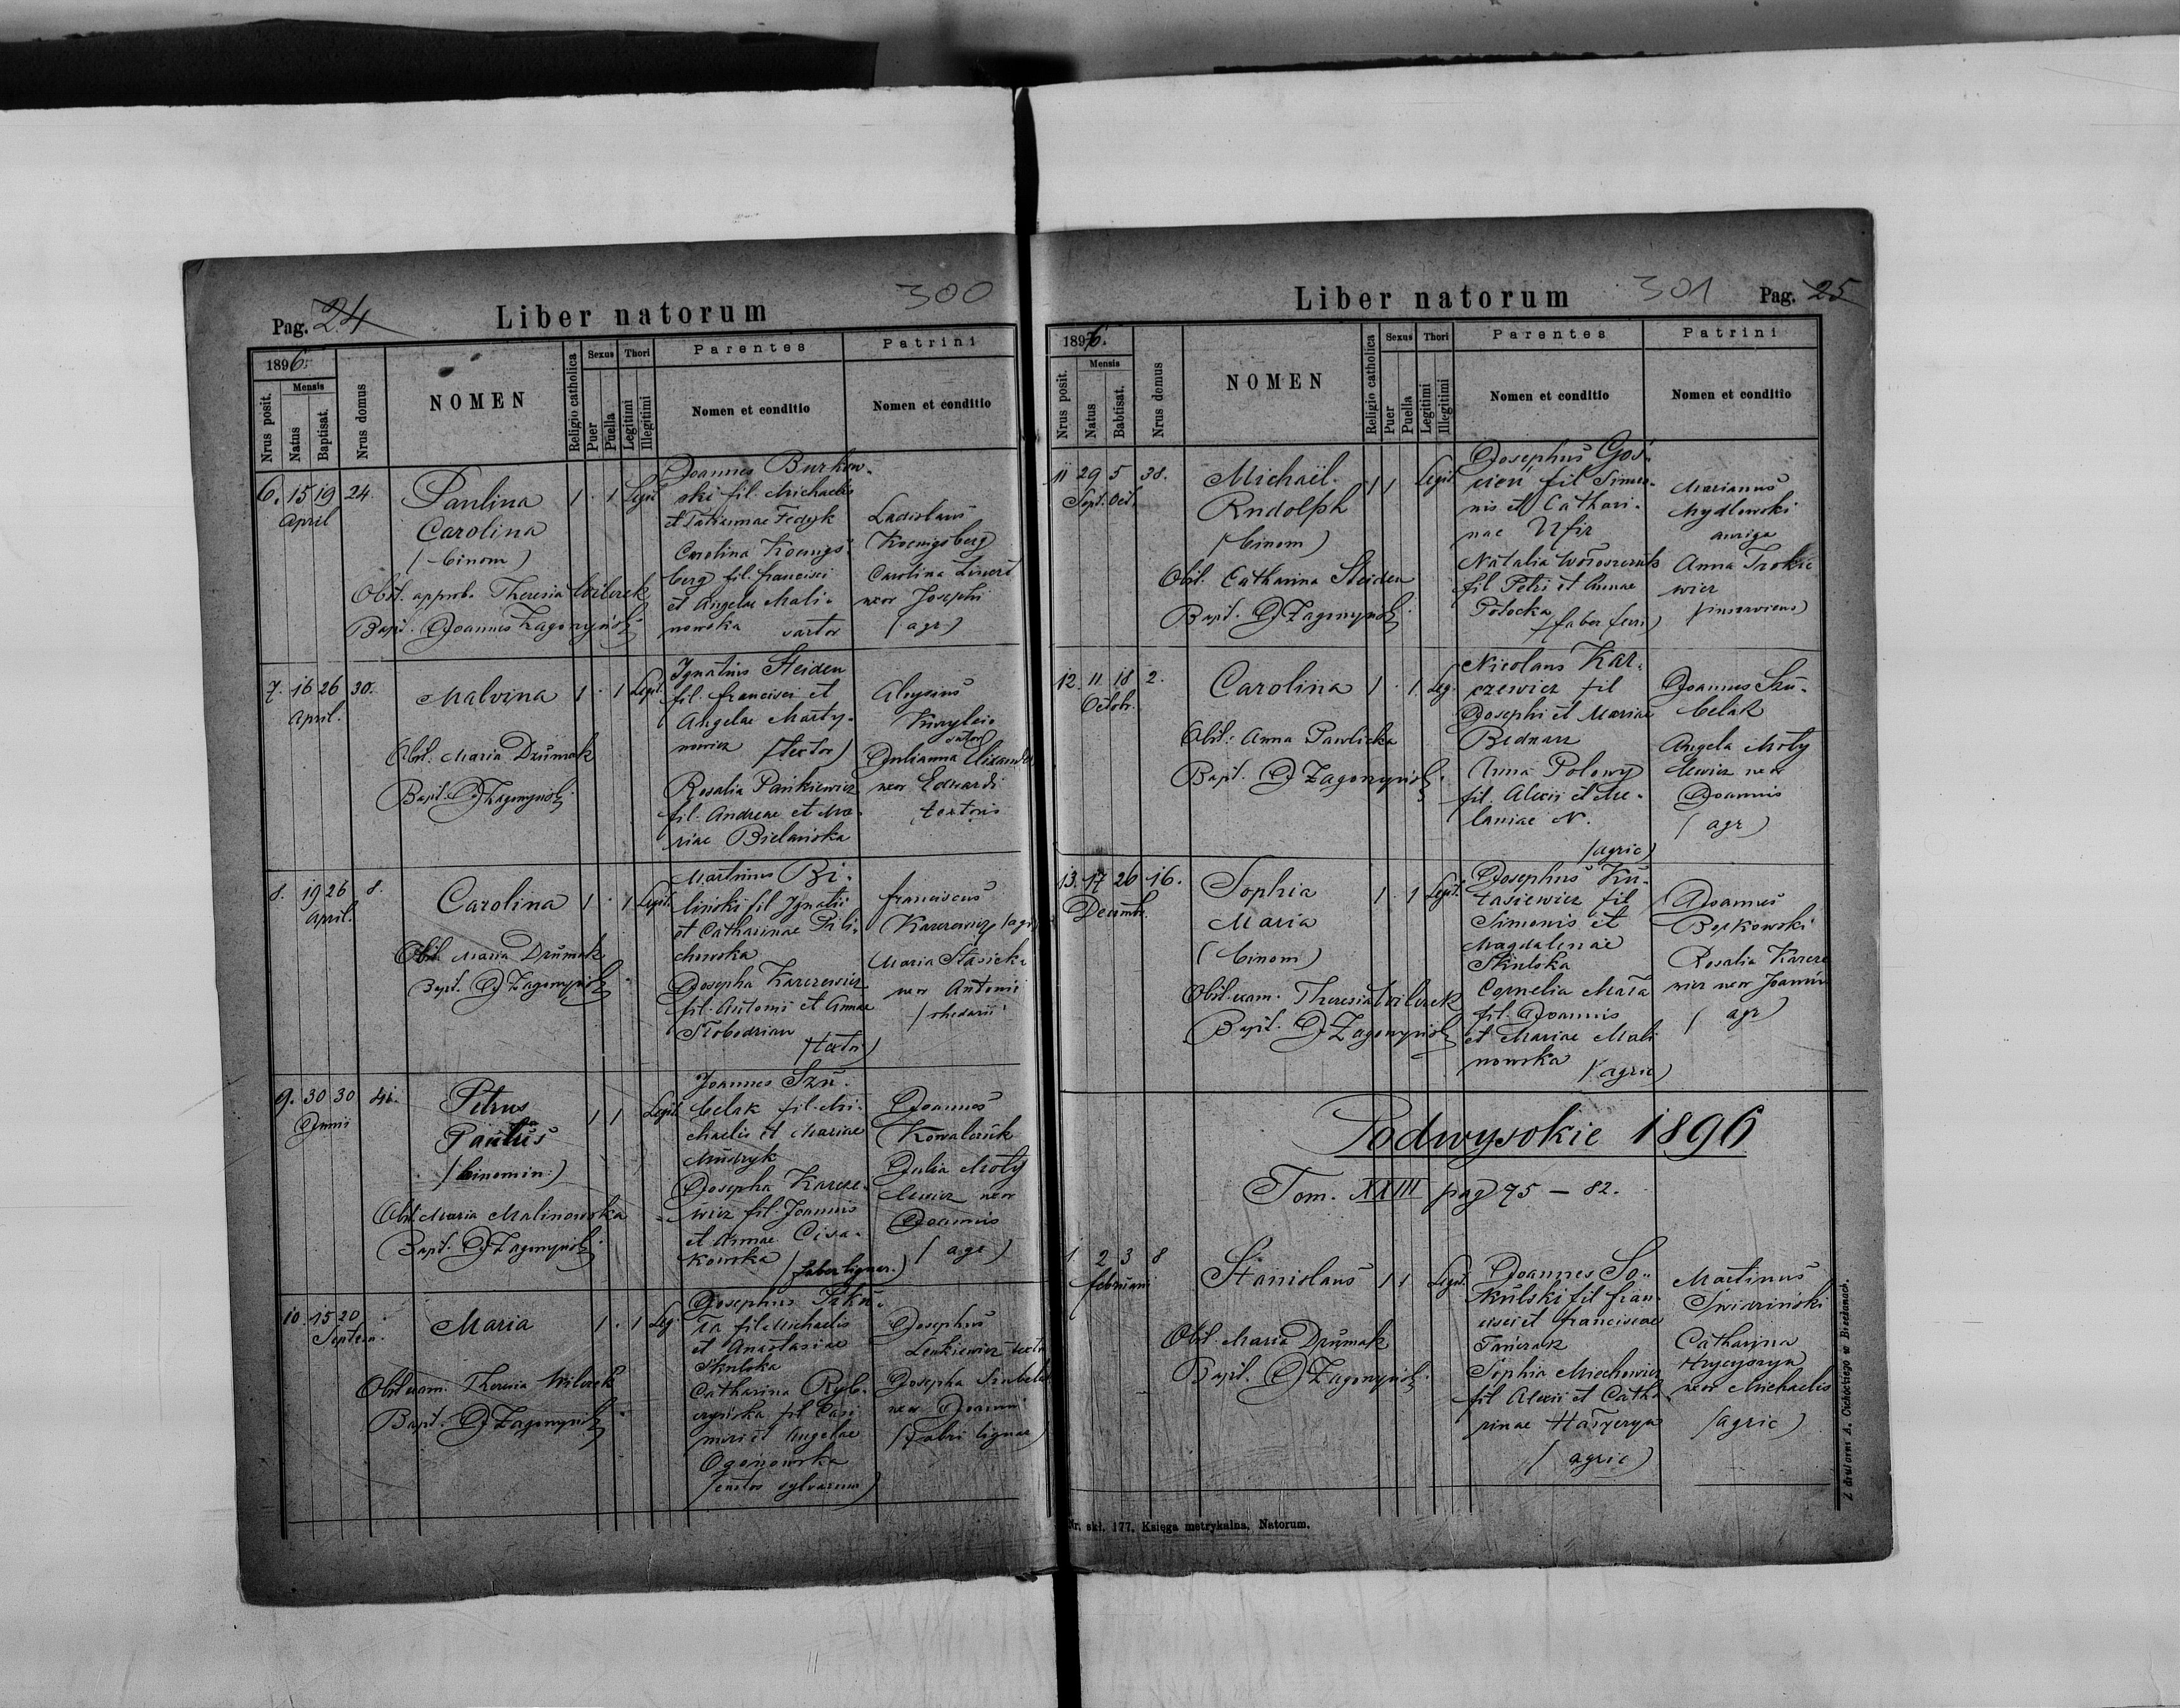 300
Pag. 24
Liber natorum
1896.
Mensis
Nrus posit.
Natus
Baptisat.
Nrus domus
NOMEN
Religio catholica
Sexus
Puer
Puella
Thori
Legitimi
Illegitimi
Parentes
Nomen et conditio
Patrini
Nomen et conditio
6. 15 19 24.
April
Paulina
Carolina
(binom)
Obst. approb. Theresia Wilczek
Bapt. Joannes Zagórzyński
1 . 1 Legit
Joannes Burkow-
ski fil. Michaelis
et Tatiannae Fedyk
Carolina Koenigs-
berg fil. francisci
et Angelae Mali-
nowska sartor
Ladislaus
Koenigsberg
Carolina
uxor Josephi
(agr)
7. 16 26 30.
April.
Malvina
Obst. Maria Drumak
Bapt. J Zagórzyński
1 . 1 Legit.
Ignatius Steiden
fil. francisci et
Angelae Marty-
nowicz (textor)
Rosalia Pankiewicz
fil. Andreae et Ma-
riae Bielawska
Aloysius
sutor
Julianna
uxor Edwardi
textoris
8. 19 26 8.
April.
Carolina
Obst. Maria Drumak
Bapt. J Zagórzyński
1 . 1 Legit.
Martinus Bi-
liński fil Ignatii
et Catharinae Pili-
chowska
Josepha Karczewicz
fil. Antonii et Annae
Słobodzian
(textor)
franciscus
Karczewicz (agr)
Maria Stasicka
uxor Antonii
(rhedarii)
9. 30 30 41.
Junii
Petrus
Paulus
(binomin:)
Obst. Maria Malinowska
Bapt. J Zagórzyński
1 1 Legit.
Joannes Szu-
belak fil. Mi-
chaelis et Mariae
Mudryk
Josepha Karcze-
wicz fil. Joannis
et Annae Cisa-
kowska
(faber lignar.)
Joannes
Kowalczuk
Julia Moty
lewicz uxor
Joannis
(agr)
10. 15 20
Septem.
Maria
Obst. exam. Theresia Wilczek
Bapt. J Zagórzyński
1 . 1 Leg.
Josephus
fil. Michaelis
et Anastasiae
Skulska
Catharina Ryb-
czyńska fil Casi
miri et Angelae
Ogonowska
(custos sylvarum)
Josephus
Lenkiewicz textor
Josepha
uxor Joannis
(fabri lignar)
301
Liber natorum
Pag. 25
1896.
Mensis
Nrus posit.
Natus
Babtisat.
Nrus domus
NOMEN
Religio catholica
Sexus
Puer
Puella
Thori
Legitimi
Illegitimi
Parentes
Nomen et conditio
Patrini
Nomen et conditio
11 29 5 38.
Sept. Oct.
Michaël.
Rudolph
(binom)
Obst. Catharina Steiden
Bapt. J Zagórzyński
1 1 Legit.
Josephus Goś-
cień fil Simeo-
nis et Cathari-
nae Ufir
Natalia Woroszczuk
fil Petri et Annae
Potocka
(faber ferri)
Marianus
Mydlowski
auriga
Anna Trokie
wicz
(inserviens)
12. 11 18 2.
Octob.
Carolina
Obst. Anna Pawlicka
Bapt. J Zagórzyński
1 . 1. Leg.
Nicolaus Kar-
czewicz fil
Josephi et Mariae
Bednarz
Anna Polowy
fil. Alexii et Me-
laniae N.
(agric)
Joannes Szu-
belak
Angela Moty
lewicz uxor
Joannis
(agr)
13. 17 26 16.
Decemb.
Sophia
Maria
(binom)
Obst. exam. Theresia Wilczek
Bapt. J Zagórzyński
1 . 1 Legit.
Josephus Ku-
tasiewicz fil
Simeonis et
Magdalenae
Skulska
Cornelia Mata
fil. Joannis
et Mariae Mali
nowska
(agric)
Joannes
Berkowski
Rosalia Karcze
wicz uxor Joannis
(agr)
Podwysokie 1896
Tom. XXIII pag 75 – 82.
1 2 3 8
februarii
Stanislaus
Obst. Maria Drumak
Bapt. J Zagórzyński
1 1 Legit.
Joannes So-
kulski fil fran-
cisci et franciscae
Tańczak
Sophia Miechowicz
fil Alexii et Catha
rinae
(agric)
Martinus
Świrzinski
Catharyna
Hrycyszyn
uxor Michaelis
(agric)
Nr. skł. 177. Księga metrykalna, Natorum.
Z drukarni A. Cichockiego w Brzeżanach.